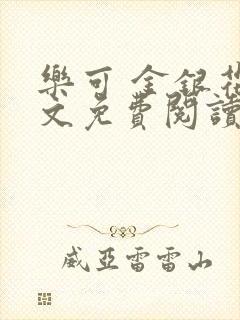 樂可 金銀花
文免費閱讀
威亞雷雷山